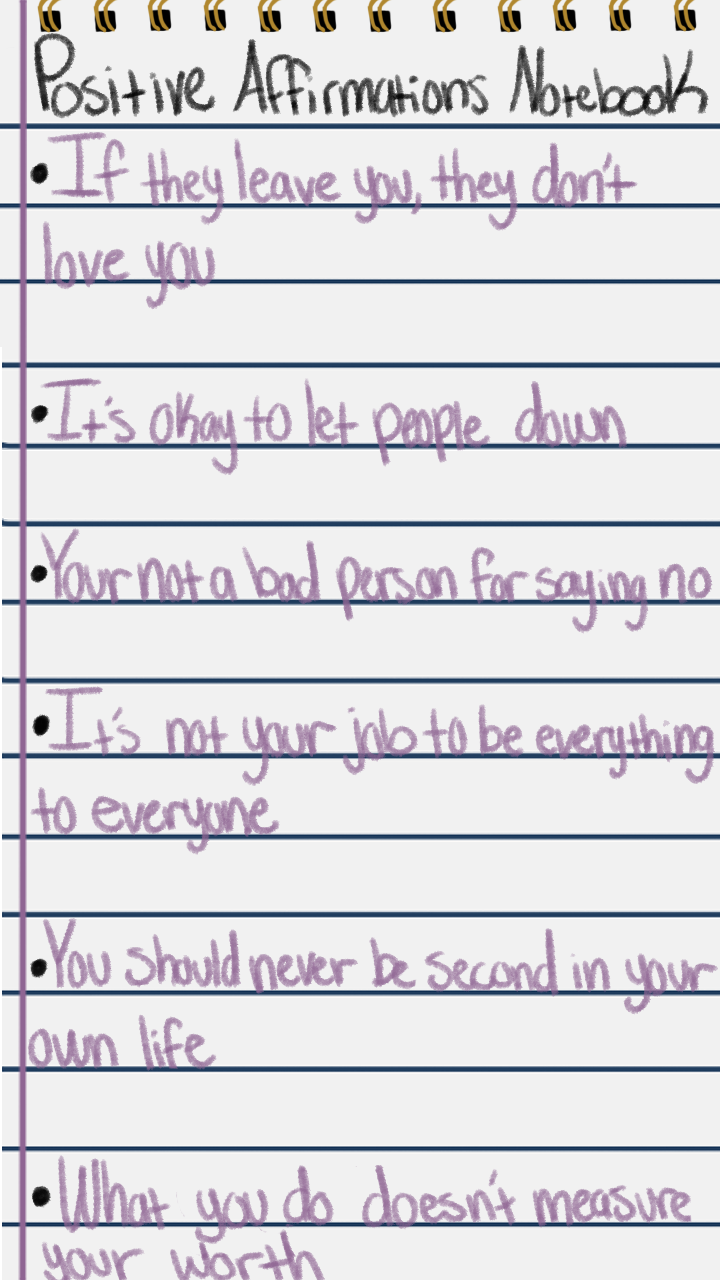 Positive Affirmations Notebook
•If they leave you, they don't
love you
•It's okay to let people down
•Your not a bad person for saying no
•It's not your job to be everything
to everyone
•You should never be second in your
own life
•What you do doesn't measure
your worth